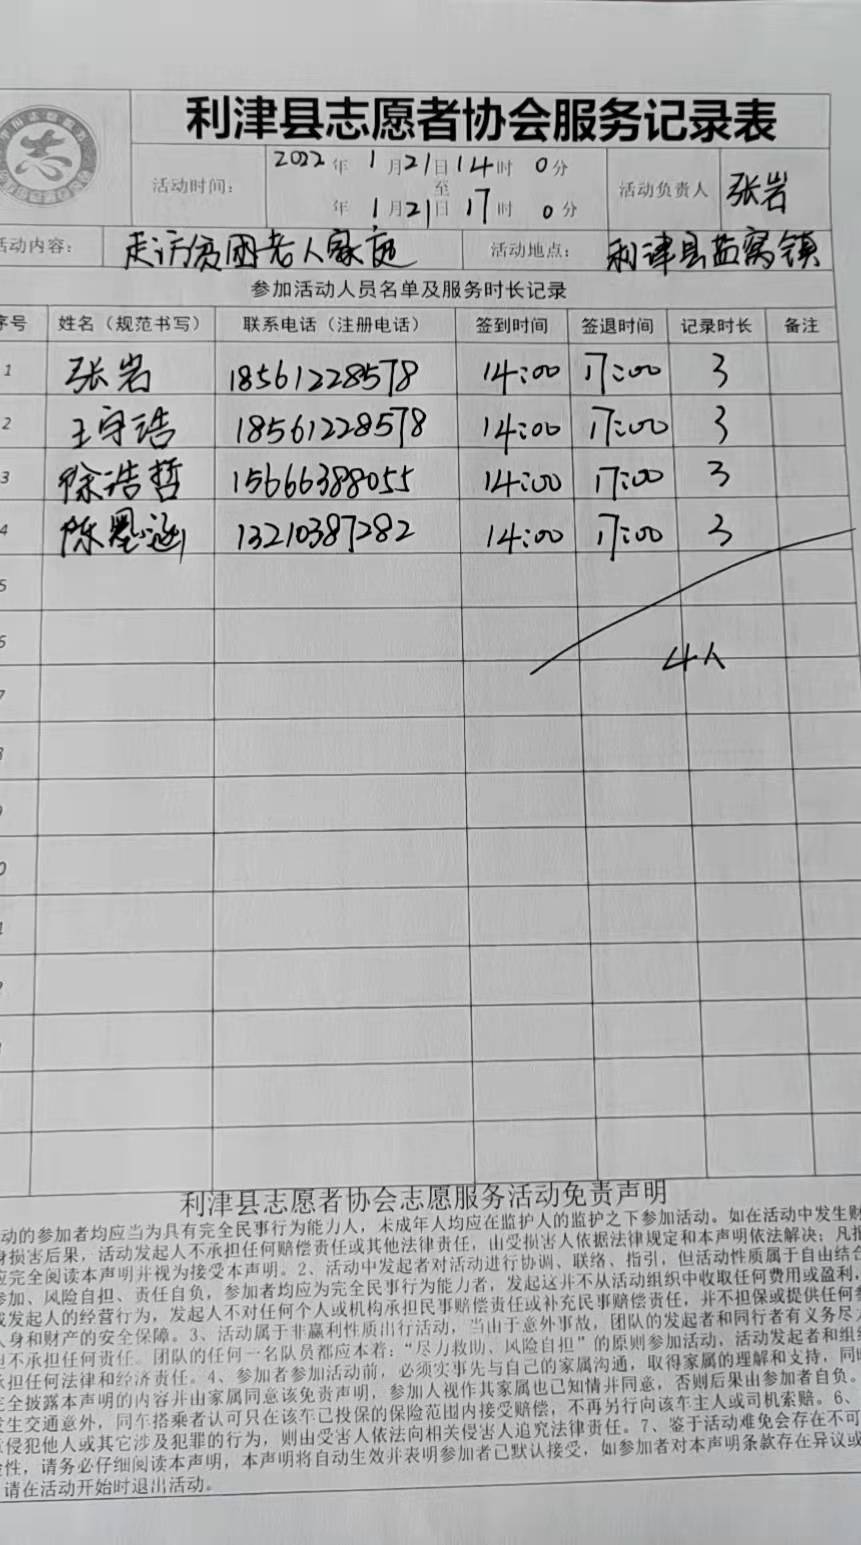 利津县志愿者协会服务记录表
活动时间： 2022年 1月21日14时 0分
至
年 1月21日 17时 0分
活动负责人 张岩
活动内容： 走访贫困老人家庭 活动地点： 利津县盐窝镇
参加活动人员名单及服务时长记录
序号 姓名（规范书写） 联系电话（注册电话） 签到时间 签退时间 记录时长 备注
1 张岩 18561228578 14:00 17:00 3
2 王守浩 18561228578 14:00 17:00 3
3 徐浩哲 15666388055 14:00 17:00 3
4 陈墨涵 13210387282 14:00 17:00 3
5
6
4人
7
利津县志愿者协会志愿服务活动免责声明
动的参加者均应当为具有完全民事行为能力人，未成年人均应在监护人的监护之下参加活动。如在活动中发生财
身损害后果，活动发起人不承担任何赔偿责任或其他法律责任，由受损害人依据法律规定和本声明依法解决；凡报
应完全阅读本声明并视为接受本声明。2、活动中发起者对活动进行协调、联络、指引，但活动性质属于自由结合
参加、风险自担、责任自负，参加者均应为完全民事行为能力者，发起这并不从活动组织中收取任何费用或盈利，
或发起人的经营行为，发起人不对任何个人或机构承担民事赔偿责任或补充民事赔偿责任，并不担保或提供任何参
人身和财产的安全保障。3、活动属于非赢利性质出行活动，当由于意外事故，团队的发起者和同行者有义务尽力
但不承担任何责任。团队的任何一名队员都应本着：“尽力救助、风险自担”的原则参加活动，活动发起者和组织
承担任何法律和经济责任。4、参加者参加活动前，必须实事先与自己的家属沟通，取得家属的理解和支持，同时
完全披露本声明的内容并由家属同意该免责声明，参加人视作其家属也已知情并同意，否则后果由参加者自负。
发生交通意外，同车搭乘者认可只在该车已投保的保险范围内接受赔偿，不再另行向该车主人或司机索赔。6、
侵犯他人或其它涉及犯罪的行为，则由受害人依法向相关侵害人追究法律责任。7、鉴于活动难免会存在不可
性，请务必仔细阅读本声明，本声明将自动生效并表明参加者已默认接受，如参加者对本声明条款存在异议或
请在活动开始时退出活动。